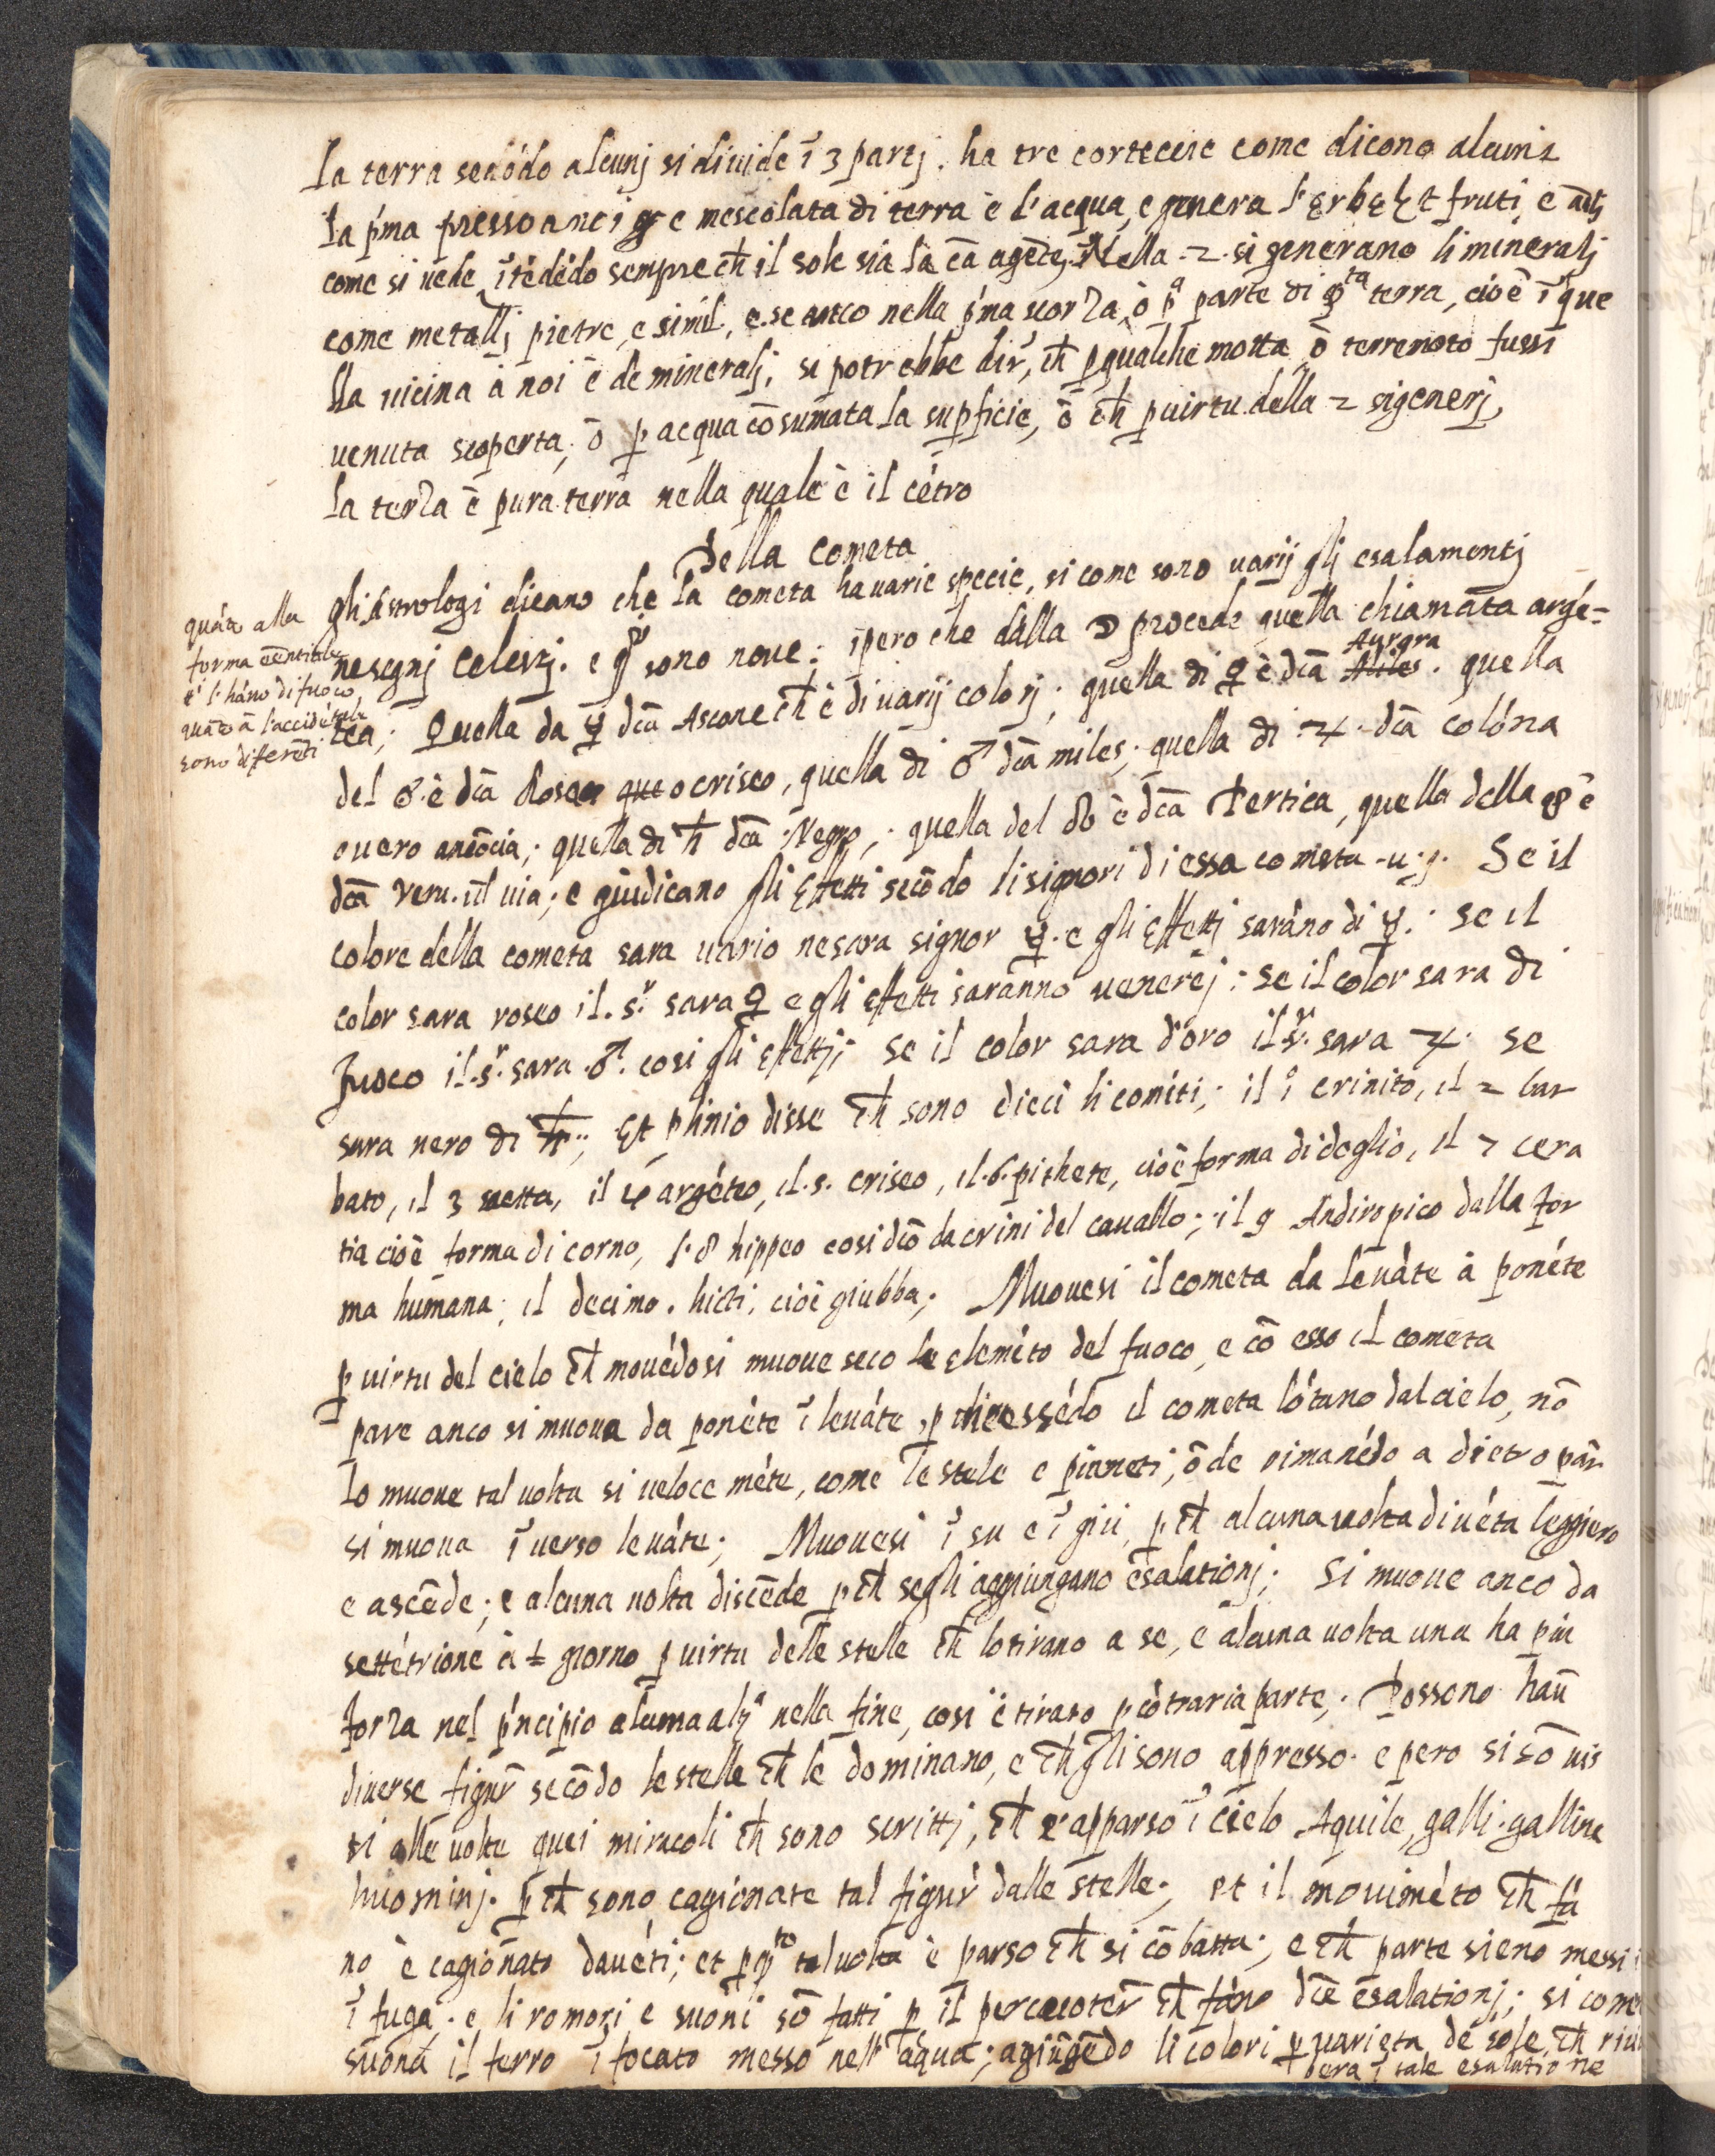 la terra secōdo alcunj si diuide ī 3 partj. ha tre cortecie come dicono alcuni
la p̃ma presso a noi e mescolata di terra e l'acqua, e genera l'erbe et fruti, e
come si uede, ītēdēdo sempre ch̄ il sole sia la cā agēte. Nella 2. si generano li mineralj
come metallj pietre, e simil., e se anco nella p̃ma scorza, ò pᵃ parte di qᵗᵃ terra, cioè ī que
lla uicina à noi è de mineralj, si potrebbe dir, ch̄ p qualche motta, ò terremoto fussi
uenuta scoperta, ò p acqua cōsumata la supficie, ò ch̄ p uirtu della 2 si generj,
la terza è pura terra nella quale è il cētro
Della Cometa
gli Astrologi dicano che la cometa ha uarie specie, si come sono uarij gli esalamentj
ne segnj Celestj. e sono noue: īpero che dalla ☽ procede quella chiamata argē=
tea; Quella da ☿ dcā Ascone ch̄ è di uarij colorj; quella di ♀ è dcā Aurora. quella
del è dcā Rosea o criseo, quella di ♂ dcā miles; quella di ♃ dcā colōna
ouero; quella di ♄ dcā Negro; quella del ☊ è dcā Pertica, quella della ☋ è
dcā Veru. ; e giudicano gli effetti secōdo li signori di essa cometa u.g. Se il
colore della cometa sara uario ne sara signor ☿ e gli effettj sarāno di ☿: se il
color sara roseo il sʳ sara ♀ e gli effetti saranno uenerej: se il color sara di
fuoco il sʳ sara ♂ cosi gli effettj; se il color sara d'oro il sʳ sara ♃; se
sara nero di ♄; Et plinio disse ch̄ sono dieci li cometi; il 1 crinito, il 2 bar
bato, il 3 saetta, il 4 argēteo, il 5. criseo, il 6. pithete, cioè forma di doglio, il 7 cera
tia cioè forma di corno, l'8 hippeo cosi dcō da crini del cauallo; il 9 Andiropico dalla for
ma humana; il decimo. hirti, cioè giubba; Muouesi il cometa da leuāte à ponēte
p uirtu del cielo ch̄ mouēdosi muoue seco lo elemēto del fuoco, e cō esso il cometa
pare anco si muoua da ponēte ī leuāte, p essēdo il cometa lōtano dal cielo, nō
lo muoue tal uolta si ueloce mēte, come le stele e pianeti, ōde rimanēdo a dietro par
si muoua ī uerso leuāte; Muouesi ī su e ī giu, p ch̄ alcuna uolta diuēta leggiero
e ascēde; e alcuna uolta discēde p ch̄ se gli aggiungano esalationj; Si muoue anco da
settētrione à giorno p uirtu delle stelle ch̄ lo tirano a se, e alcuna uolta una ha piu
forza nel p̃ncipio alcuna nella fine, cosi è tirato p cōtraria parte; Possono hau
diuerse figur secōdo le stelle ch̄ le dominano, e ch̄ gli sono appresso. e pero si sō uis
ti alle uolte quei miracoli ch̄ sono scrittj, ch̄ è apparso ī cielo Aquile, galli. galline
huominj. p ch̄ sono cagionate tal figur dalle stelle; et il mouimēto ch̄ fa
no è cagionato da uēti; et p qᵗᵒ tal uolta è parso ch̄ si cōbatta; e ch̄ parte sieno messi
ī fuga. e li romori e suoni sō fatti p il percuoter ch̄ fāno dcē esalationj; si come
suona il ferro īfocato messo nell'aqua; agiūgēdo li colori p uarieta de sole ch̄ riu
bera ī tale esalatione
quāto alla
forma eēntiale
e l'hāno di fuoco
quāto à l'accidētale
sono diferēti